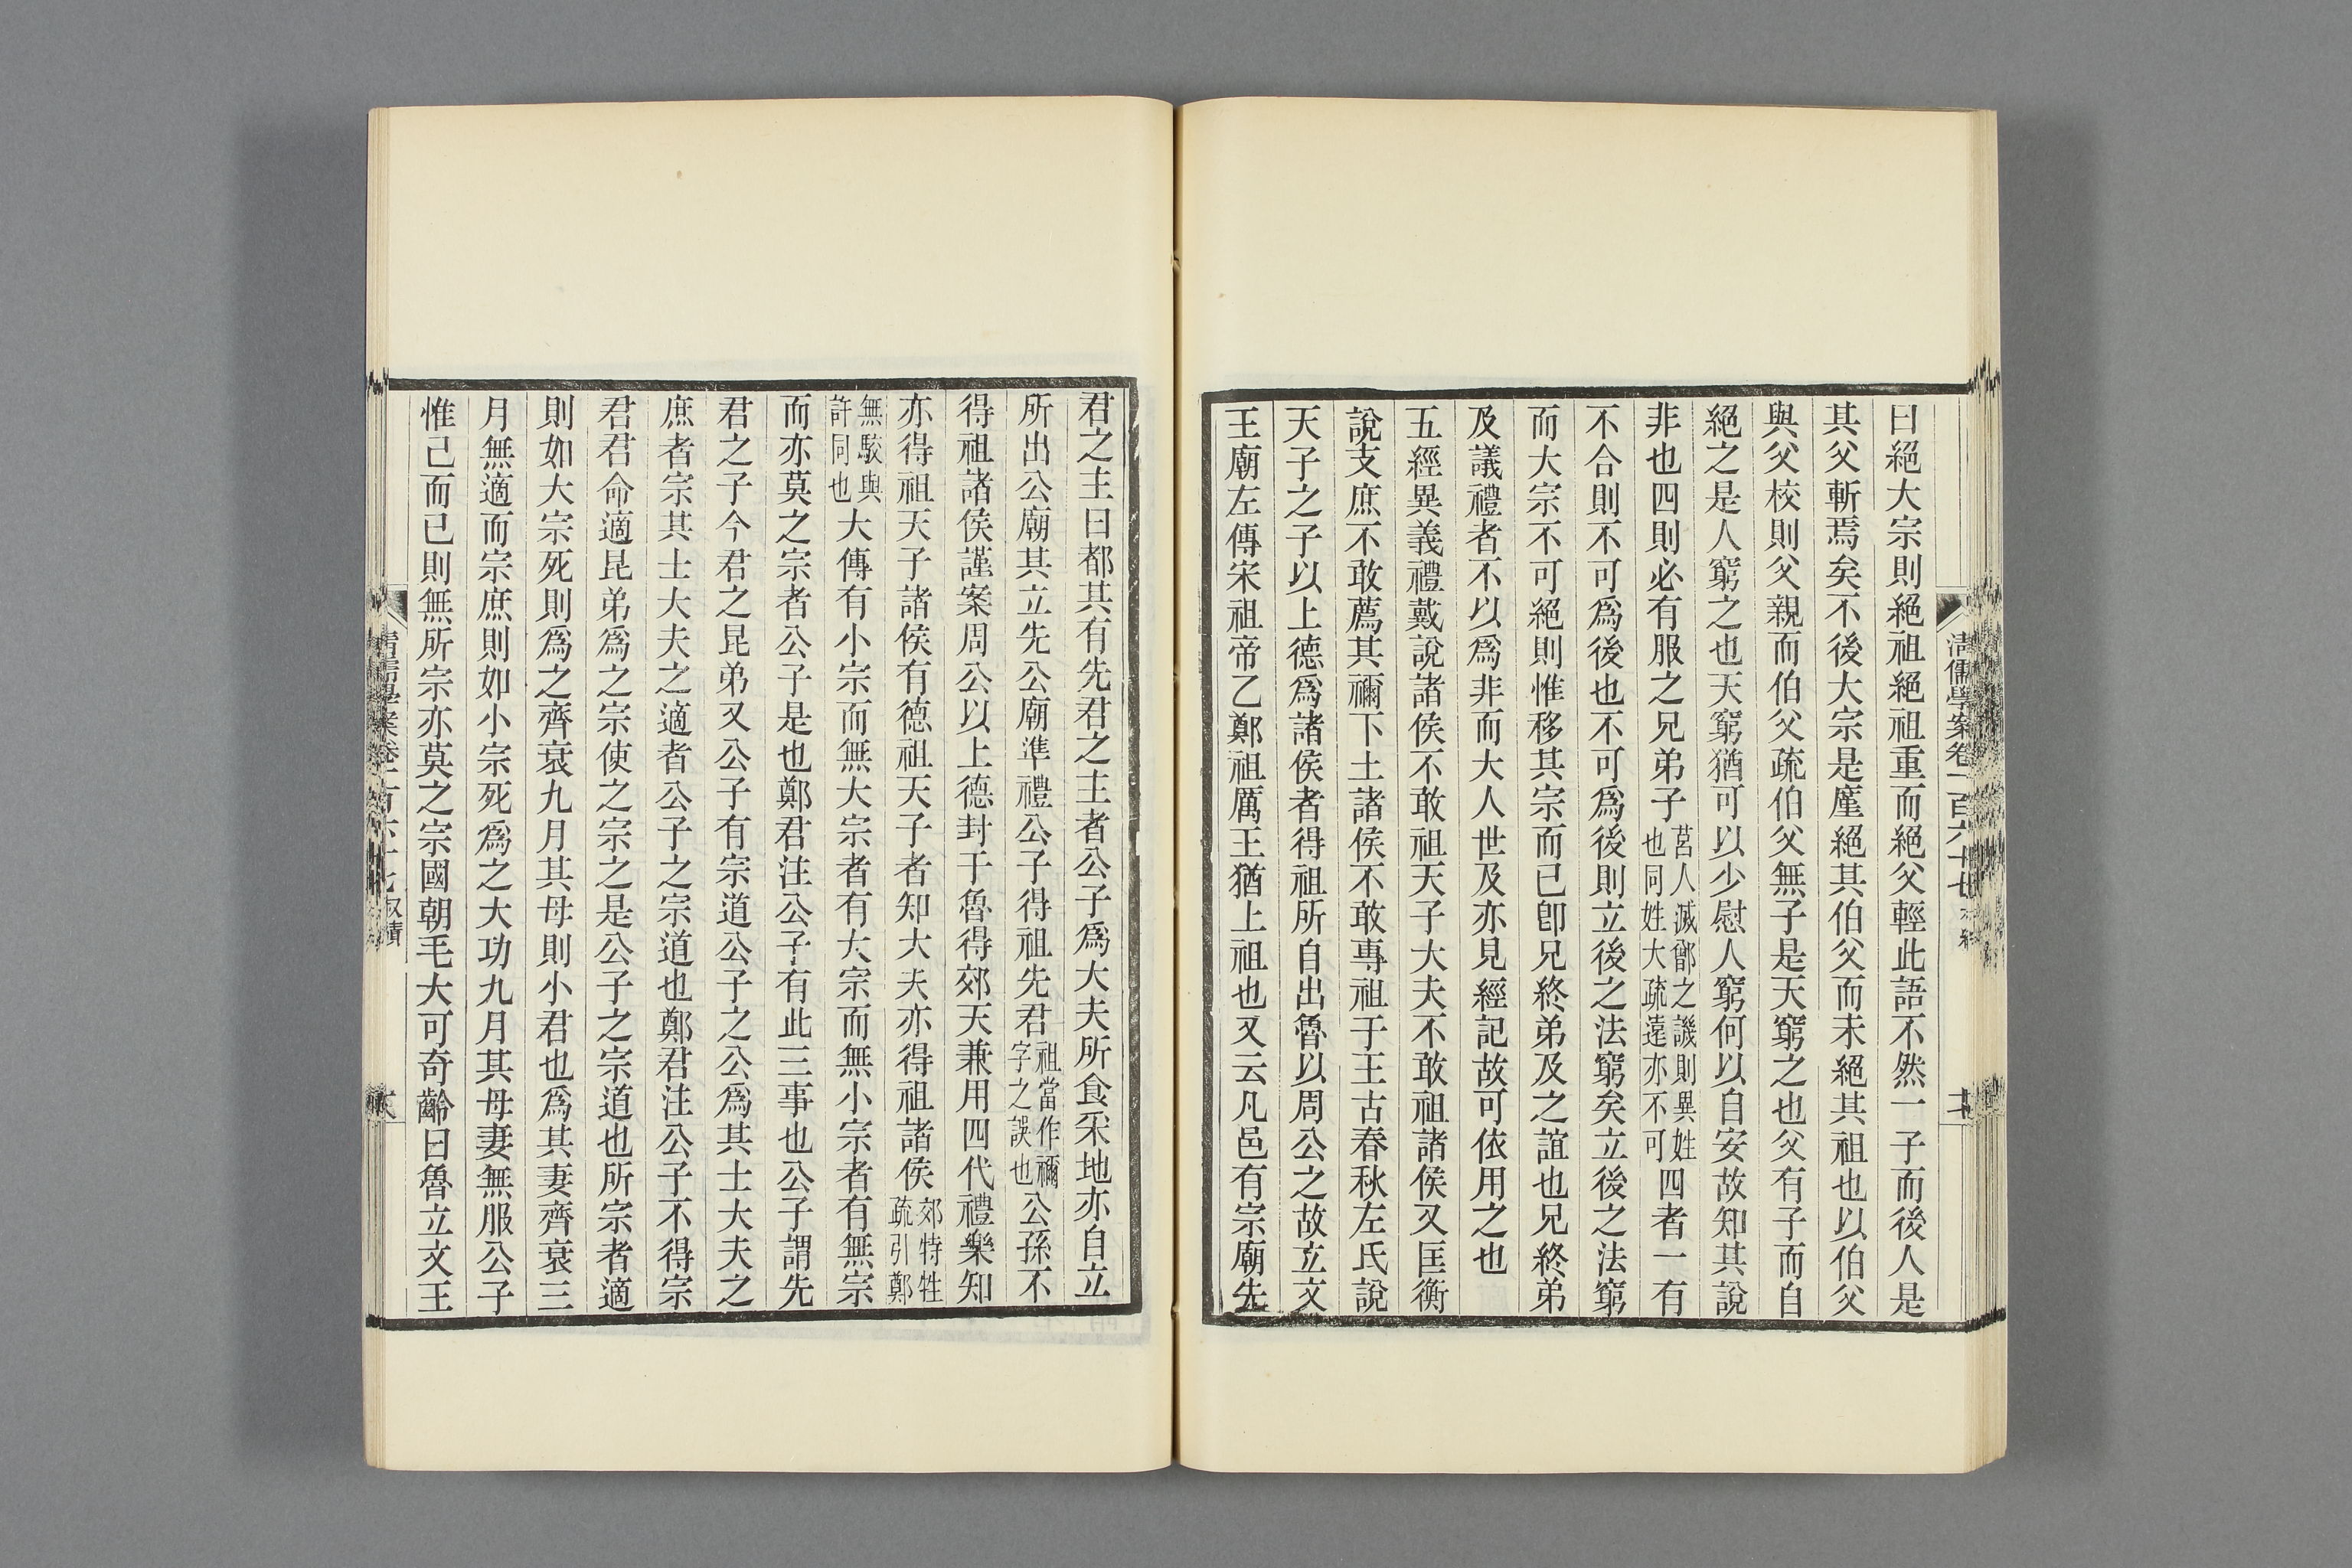 曰絕大宗則絕祖絕祖重而絕父輕此語不然一子而後人是
其父斬焉矣不後大宗是廑絕其伯父而未絕其祖也以伯父
與父校則父親而伯父疏伯父無子是天窮之也父有子而自
絕之是人窮之也天窮猶可以少慰人窮何以自安故知其說
非也四則必有服之兄弟子莒人滅鄫之譏則異姓也同姓大疏遠亦不可四者一有
不合則不可爲後也不可爲後則立後之法窮矣立後之法窮
而大宗不可絕則惟移其宗而已卽兄終弟及之誼也兄終弟
及議禮者不以爲非而大人世及亦見經記故可依用之也
五經異義禮戴說諸侯不敢祖天子大夫不敢祖諸侯又匡衡
說支庶不敢薦其禰下士諸侯不敢專祖于王古春秋左氏說
天子之子以上德爲諸侯者得祖所自出魯以周公之故立文
王廟左傳宋祖帝乙鄭祖厲王猶上祖也又云凡邑有宗廟先
君之主曰都其有先君之主者公子爲大夫所食采地亦自立
所出公廟其立先公廟準禮公子得祖先君祖當作禰字之誤也公孫不
得祖諸侯謹案周公以上德封于魯得郊天兼用四代禮樂知
亦得祖天子諸侯有德祖天子者知大夫亦得祖諸侯郊特牲疏引鄭
無駁與許同也大傳有小宗而無大宗者有大宗而無小宗者有無宗
而亦莫之宗者公子是也鄭君注公子有此三事也公子謂先
君之子今君之昆弟又公子有宗道公子之公爲其士大夫之
庶者宗其士大夫之適者公子之宗道也鄭君注公子不得宗
君君命適昆弟爲之宗使之宗之是公子之宗道也所宗者適
則如大宗死則爲之齊衰九月其母則小君也爲其妻齊衰三
月無適而宗庶則如小宗死爲之大功九月其母妻無服公子
惟己而已則無所宗亦莫之宗國朝毛大可奇齡曰魯立文王